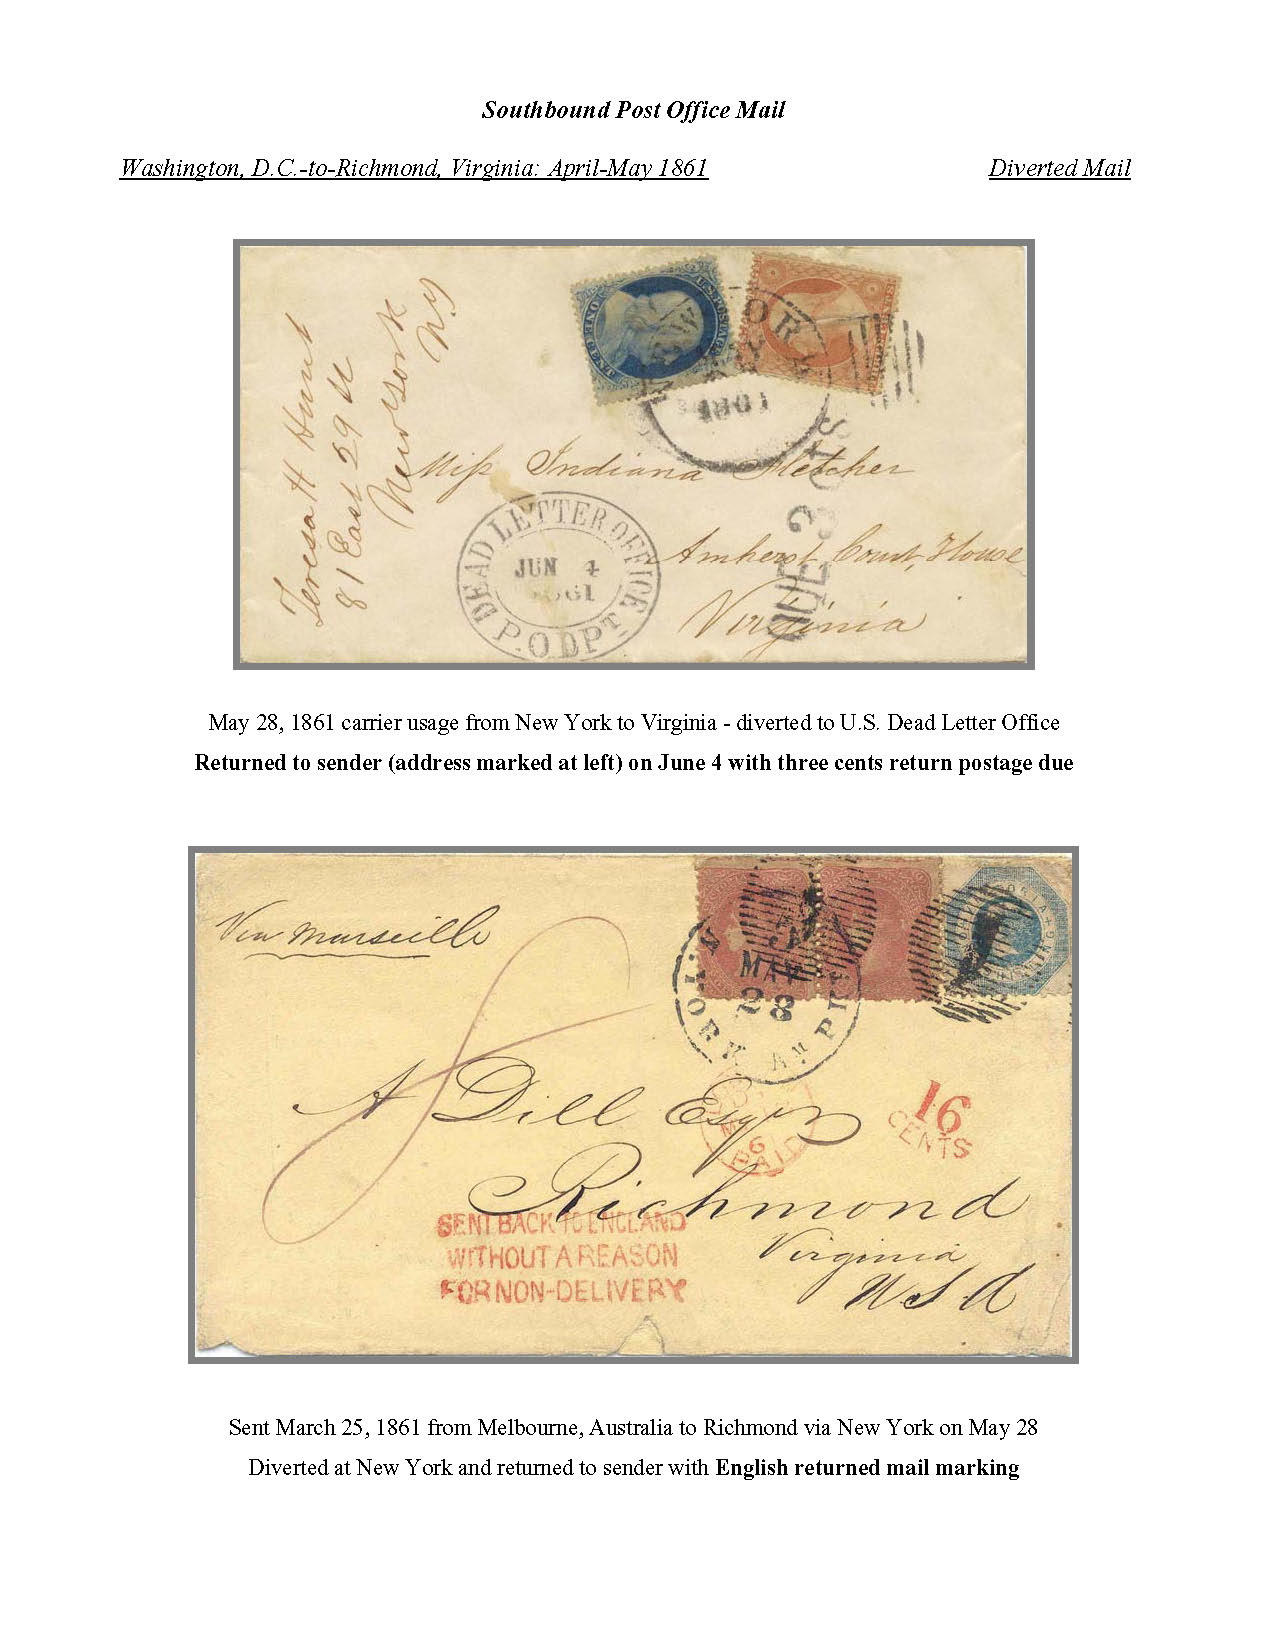 Southbound Post Office Mail
Washington, D.C.-to-Richmond, Virginia: April-May 1861 Diverted Mail
Teresa H Hunt
81 East 29
New York
NY
ONE CENT U.S. POSTAGE
NEW YORK
1861
DUE 3 CTS
Miss Indiana Fletcher
Amherst, Court, House
Virginia
DEAD LETTER OFFICE
JUN 4
1861
P.O DPT.
May 28, 1861 carrier usage from New York to Virginia - diverted to U.S. Dead Letter Office
Returned to sender (address marked at left) on June 4 with three cents return postage due
Via Marseille
N. YORK AM PKT
MAY
28
A Dill Esqr
16
CENTS
6
PAID
Richmond
Virginia
U.S.A
SENT BACK TO ENGLAND
WITHOUT A REASON
FOR NON-DELIVERY
Sent March 25, 1861 from Melbourne, Australia to Richmond via New York on May 28
Diverted at New York and returned to sender with English returned mail marking